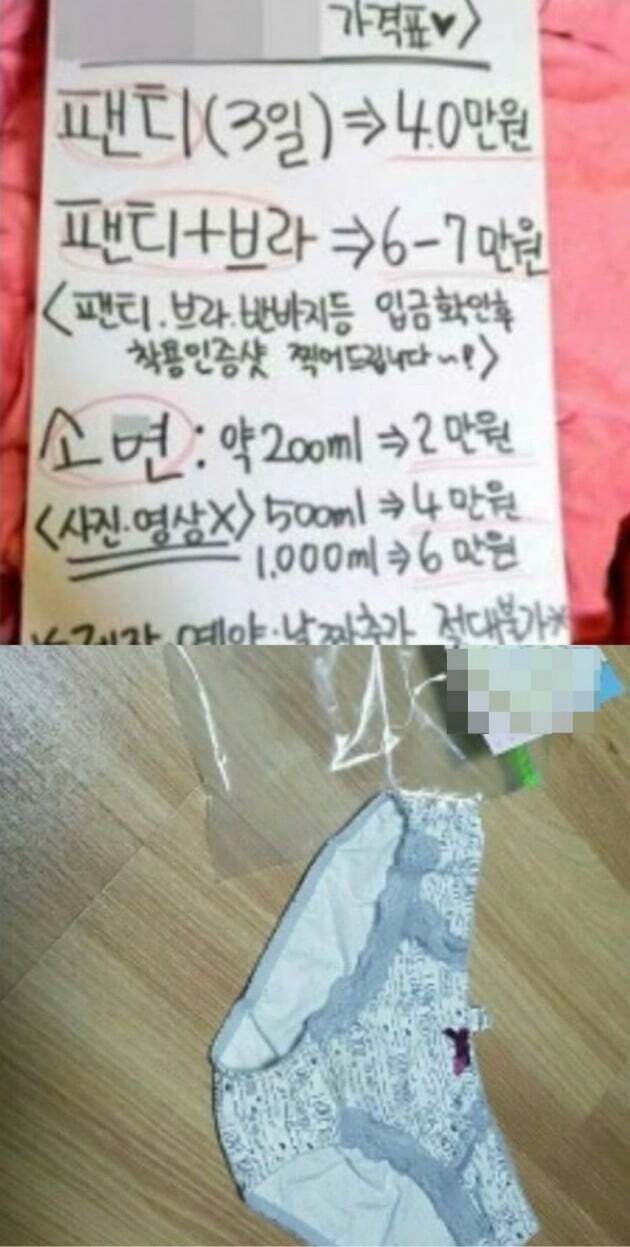 가격표♥〉
팬티(3일)⇒4.0만원
팬티+브라⇒6-7만원
〈팬티.브라.반바지등 입금확인후
착용인증샷 찍어드립니다~!〉
소변: 약200ml⇒2만원
〈사진·영상X〉500ml⇒4만원
1,000ml⇒6만원
예약·날짜추가 절대불가※